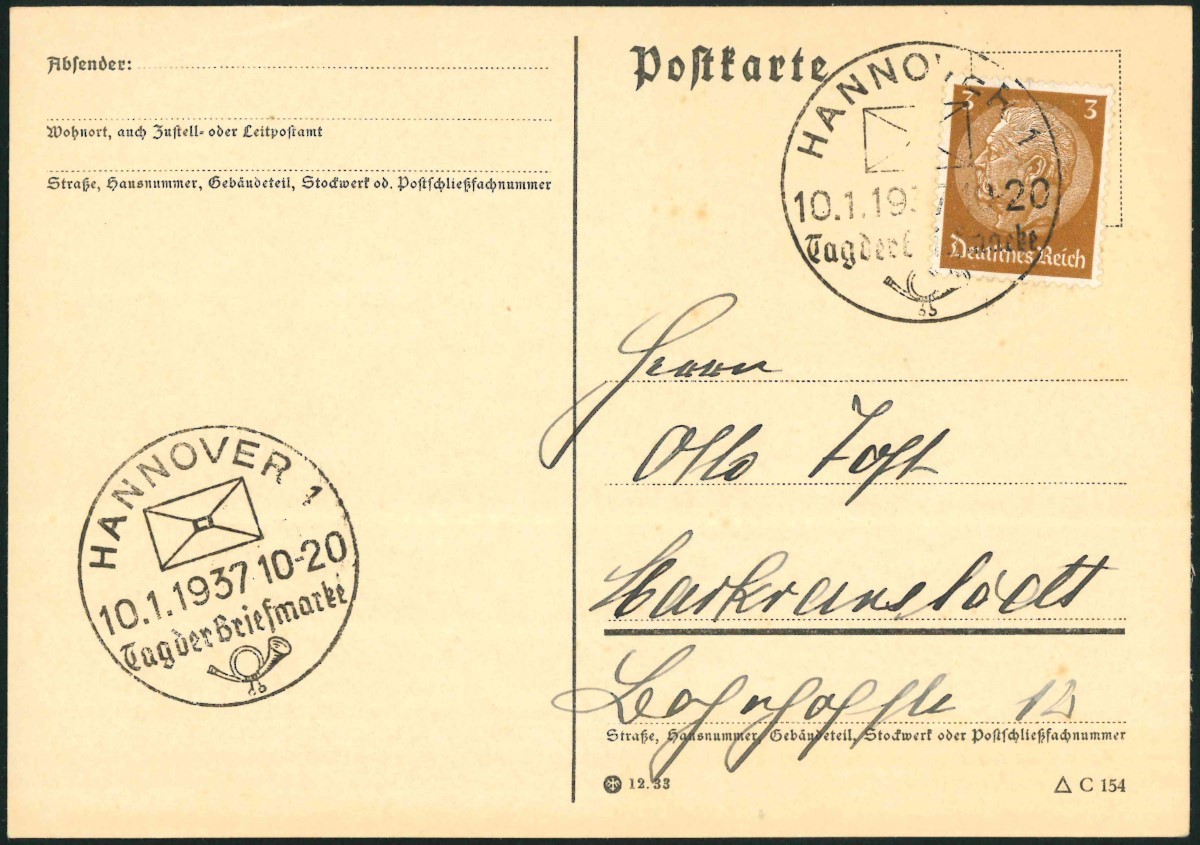 Absender:
Wohnort, auch Zustell- oder Leitpostamt
Straße, Hausnummer, Gebäudeteil, Stockwerk od. Postschließfachnummer
HANNOVER 1
10.1.1937 10-20
Tag der Briefmarke
Postkarte
HANNOVER 1
10.1.193 10-20
Tag der B marke
3 3
Deutsches Reich
Herrn
Otto
Markranstädt
Bahnhofstr. 12
Straße, Hausnummer, Gebäudeteil, Stockwerk oder Postschließfachnummer
12.33
C 154